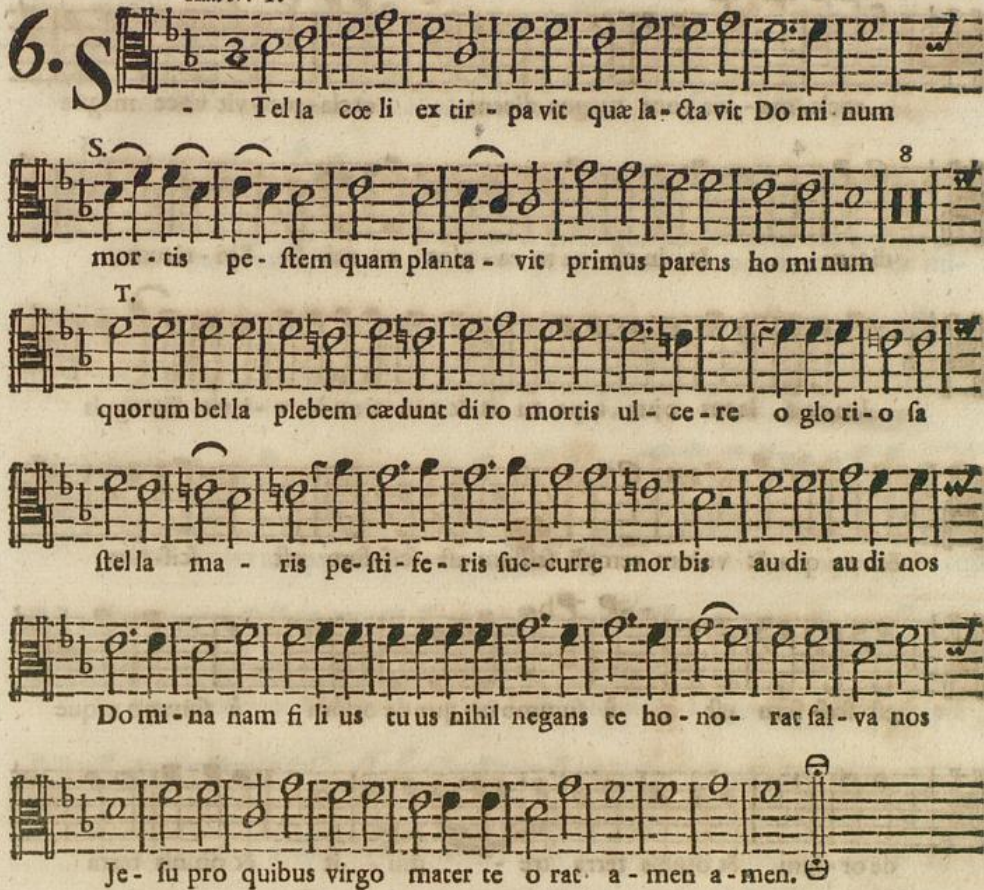 6. S
- Tel la cœ li ex tir - pa vit quæ la - cta vit Do mi - num
S. 8
mor - tis pe - ſtem quam planta - vit primus parens ho mi num
T.
quorum bel la plebem cædunt di ro mortis ul - ce - re o glo ri - o ſa
ſtel la ma - ris pe - ſti - fe - ris ſuc - curre mor bis au di au di nos
Do mi - na nam fi li us tu us nihil negans te ho - no - rat ſal - va nos
Je - ſu pro quibus virgo mater te o rat a - men a - men.